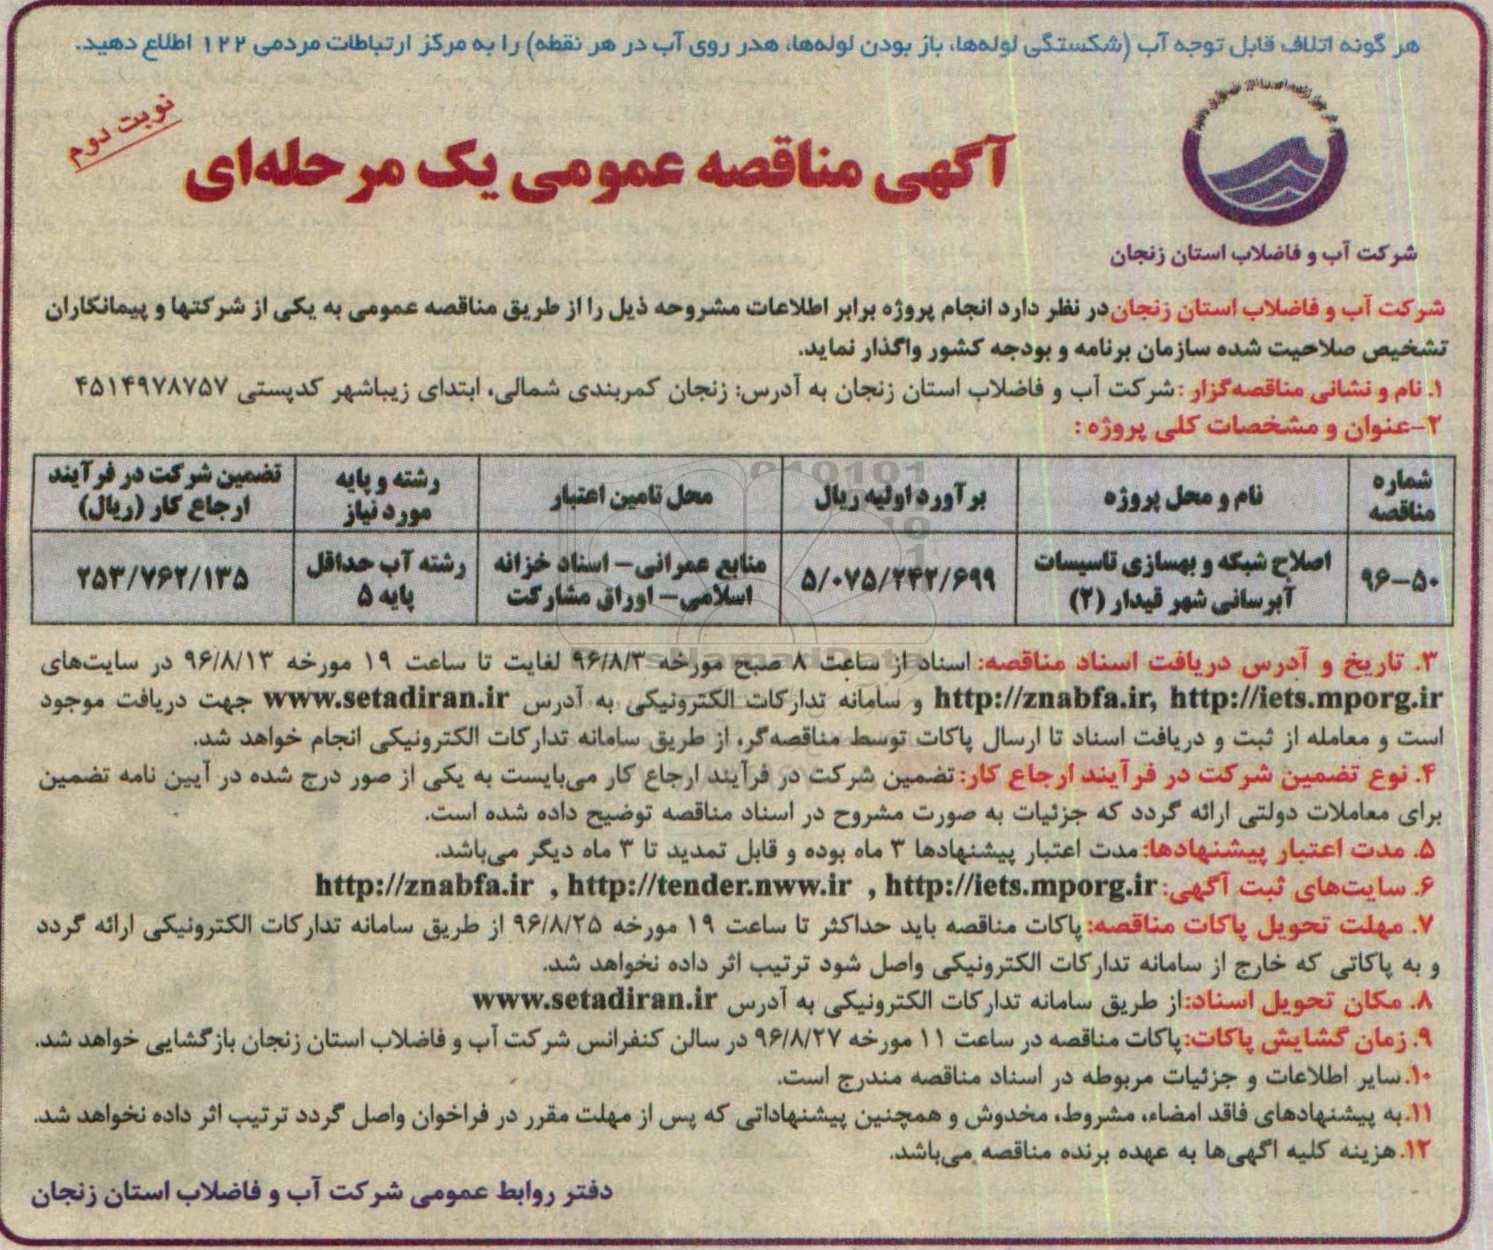 هر گونه اتلاف قابل توجه آب (شکستگی لوله‌ها، باز بودن لوله‌ها، هدر روی آب در هر نقطه) را به مرکز ارتباطات مردمی ۱۲۲ اطلاع دهید.
نوبت دوم
آگهی مناقصه عمومی یک مرحله‌ای
شرکت آب و فاضلاب استان زنجان
شرکت آب و فاضلاب استان زنجان در نظر دارد انجام پروژه برابر اطلاعات مشروحه ذیل را از طریق مناقصه عمومی به یکی از شرکتها و پیمانکاران
تشخیص صلاحیت شده سازمان برنامه و بودجه کشور واگذار نماید.
۱. نام و نشانی مناقصه‌گزار : شرکت آب و فاضلاب استان زنجان به آدرس: زنجان کمربندی شمالی، ابتدای زیباشهر کدپستی ۴۵۱۴۹۷۸۷۵۷
۲-عنوان و مشخصات کلی پروژه :
شماره مناقصه | نام و محل پروژه | برآورد اولیه ریال | محل تامین اعتبار | رشته و پایه مورد نیاز | تضمین شرکت در فرآیند ارجاع کار (ریال)
۹۶-۵۰ | اصلاح شبکه و بهسازی تاسیسات آبرسانی شهر قیدار (۲) | ۵/۰۷۵/۲۴۲/۶۹۹ | منابع عمرانی- اسناد خزانه اسلامی- اوراق مشارکت | رشته آب حداقل پایه ۵ | ۲۵۳/۷۶۲/۱۳۵
۳. تاریخ و آدرس دریافت اسناد مناقصه: اسناد از ساعت ۸ صبح مورخه ۹۶/۸/۳ لغایت تا ساعت ۱۹ مورخه ۹۶/۸/۱۳ در سایت‌های
http://znabfa.ir, http://iets.mporg.ir و سامانه تدارکات الکترونیکی به آدرس www.setadiran.ir جهت دریافت موجود
است و معامله از ثبت و دریافت اسناد تا ارسال پاکات توسط مناقصه‌گر، از طریق سامانه تدارکات الکترونیکی انجام خواهد شد.
۴. نوع تضمین شرکت در فرآیند ارجاع کار: تضمین شرکت در فرآیند ارجاع کار می‌بایست به یکی از صور درج شده در آیین نامه تضمین
برای معاملات دولتی ارائه گردد که جزئیات به صورت مشروح در اسناد مناقصه توضیح داده شده است.
۵. مدت اعتبار پیشنهادها: مدت اعتبار پیشنهادها ۳ ماه بوده و قابل تمدید تا ۳ ماه دیگر می‌باشد.
۶. سایت‌های ثبت آگهی: http://znabfa.ir , http://tender.nww.ir , http://iets.mporg.ir
۷. مهلت تحویل پاکات مناقصه: پاکات مناقصه باید حداکثر تا ساعت ۱۹ مورخه ۹۶/۸/۲۵ از طریق سامانه تدارکات الکترونیکی ارائه گردد
و به پاکاتی که خارج از سامانه تدارکات الکترونیکی واصل شود ترتیب اثر داده نخواهد شد.
۸. مکان تحویل اسناد: از طریق سامانه تدارکات الکترونیکی به آدرس www.setadiran.ir
۹. زمان گشایش پاکات: پاکات مناقصه در ساعت ۱۱ مورخه ۹۶/۸/۲۷ در سالن کنفرانس شرکت آب و فاضلاب استان زنجان بازگشایی خواهد شد.
۱۰. سایر اطلاعات و جزئیات مربوطه در اسناد مناقصه مندرج است.
۱۱. به پیشنهادهای فاقد امضاء، مشروط، مخدوش و همچنین پیشنهاداتی که پس از مهلت مقرر در فراخوان واصل گردد ترتیب اثر داده نخواهد شد.
۱۲. هزینه کلیه اگهی‌ها به عهده برنده مناقصه می‌باشد.
دفتر روابط عمومی شرکت آب و فاضلاب استان زنجان